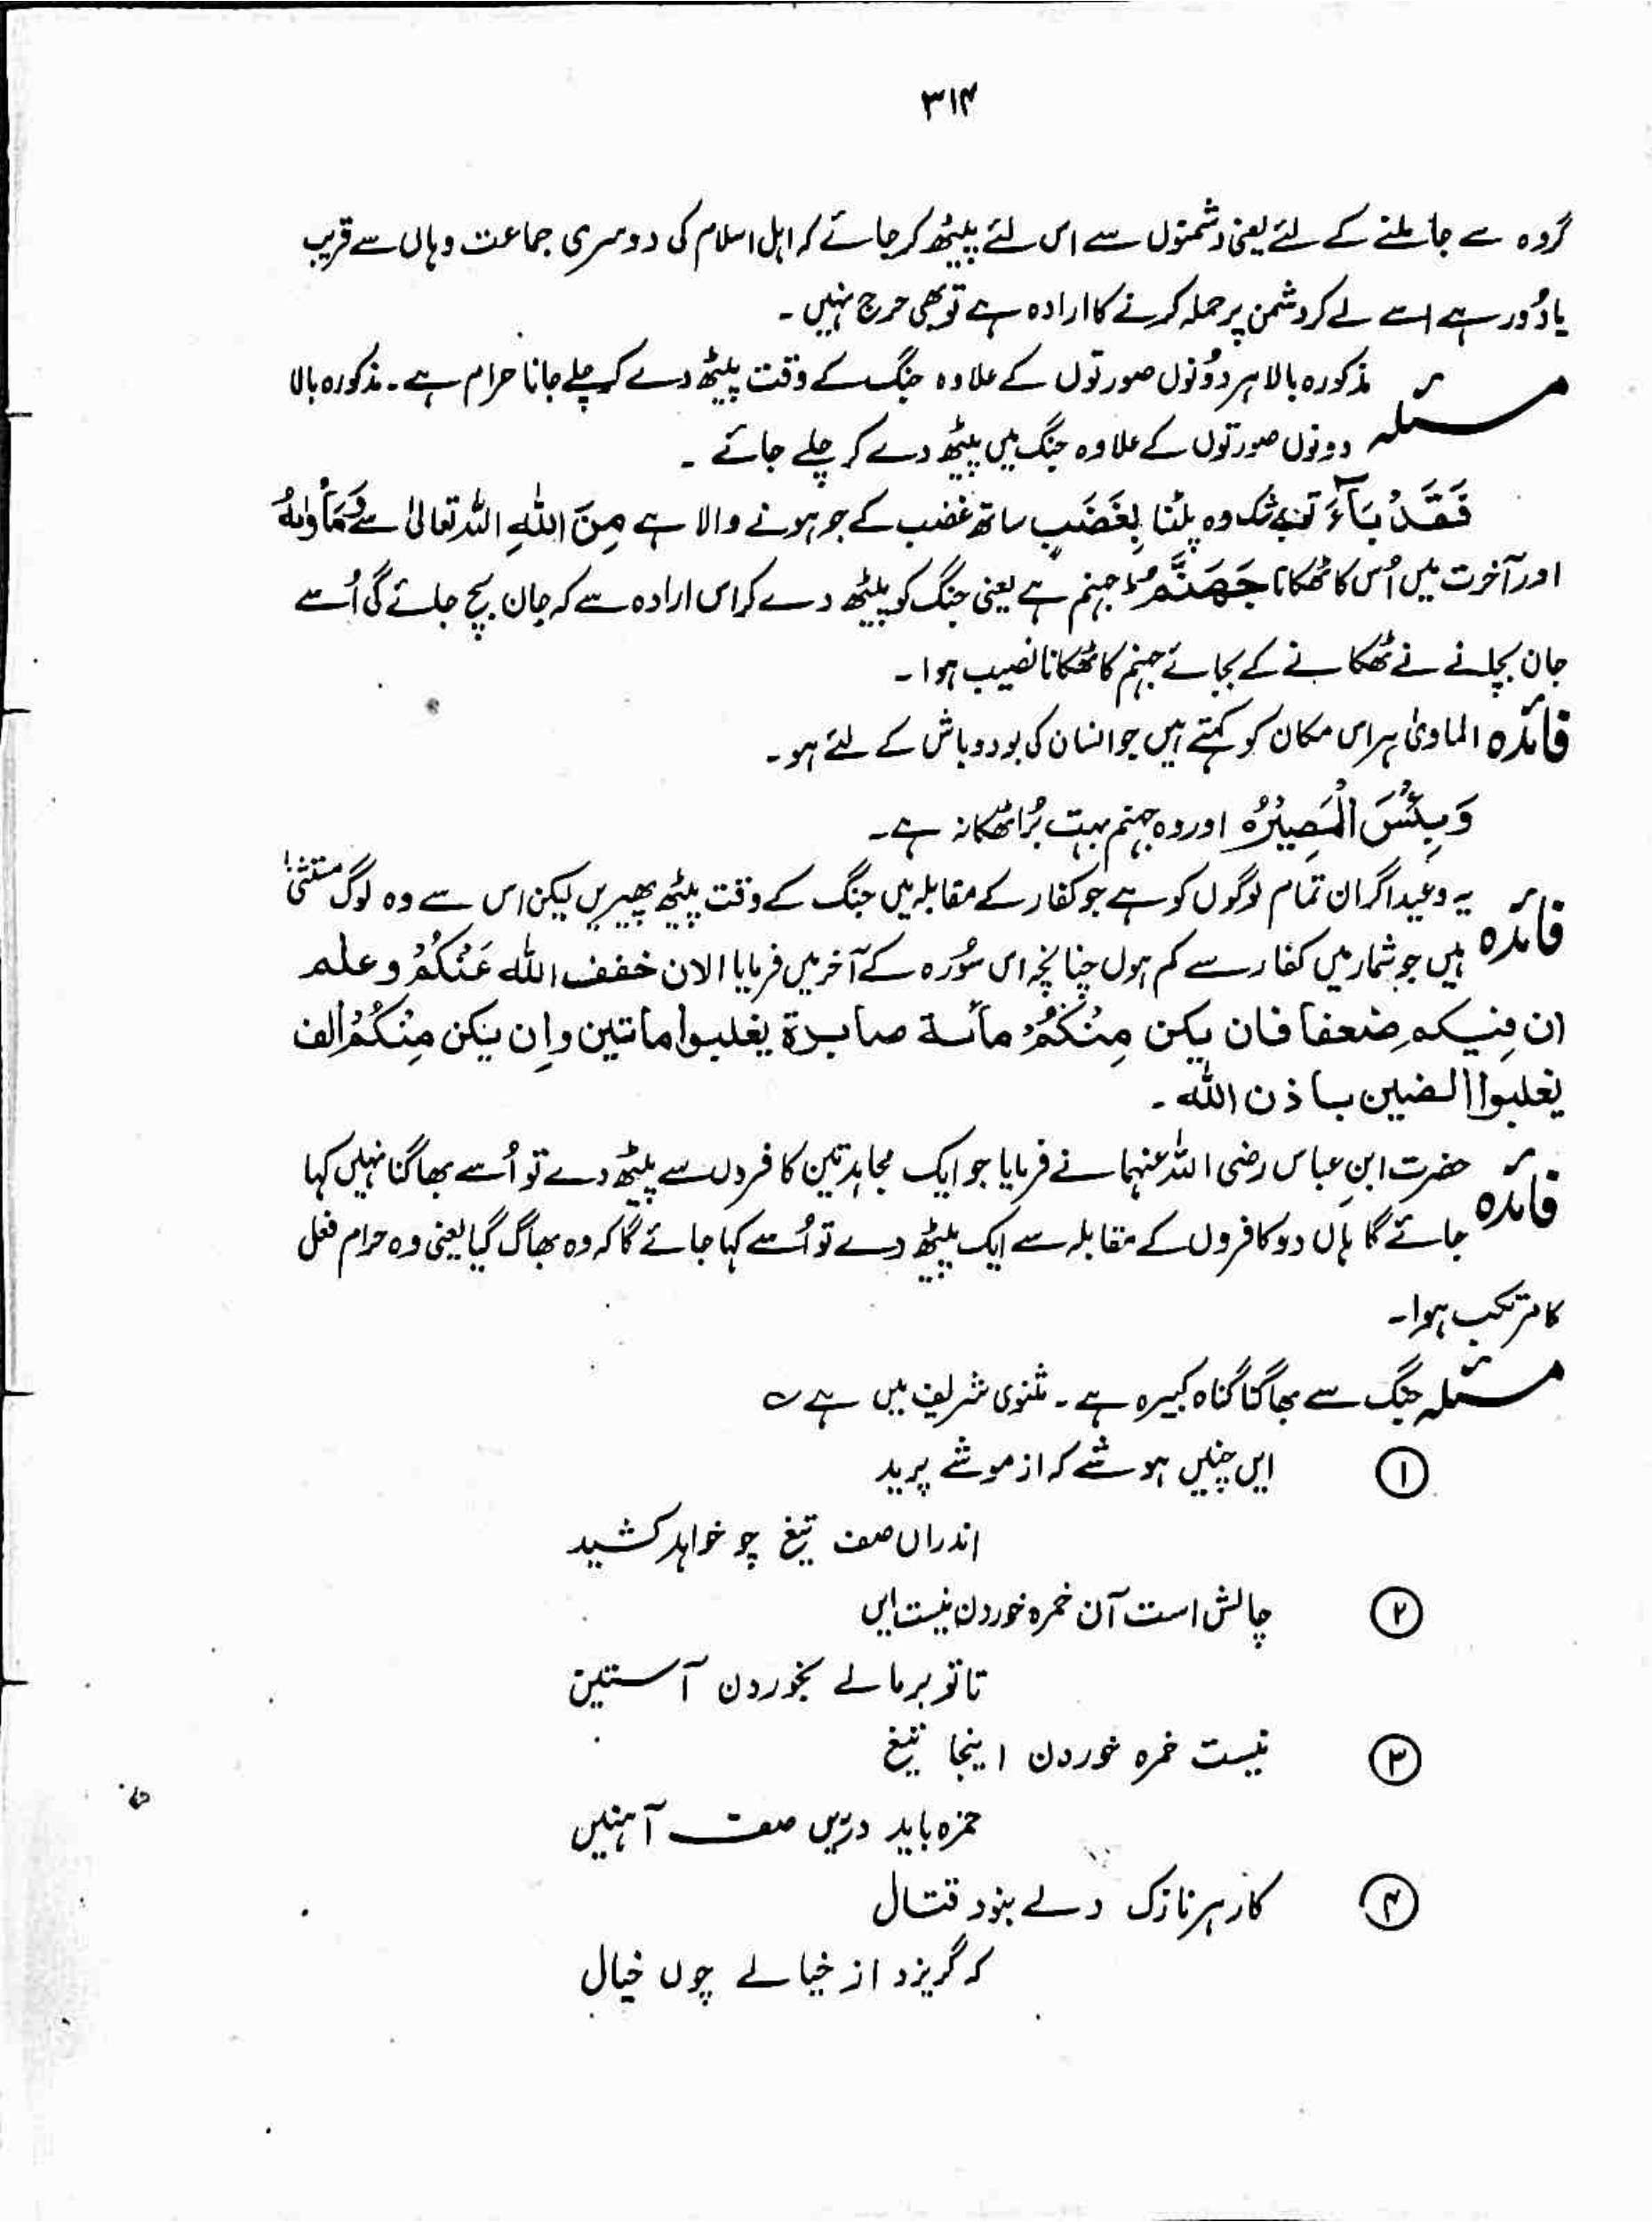 ۳۱۴
گروہ سے جا ملنے کے لئے یعنی دشمنوں سے اس لئے پیٹھ کر جائے کہ اہل اسلام کی دوسری جماعت وہاں سے قریب
یا دُور ہے اسے لے کر دشمن پر حملہ کرنے کا ارادہ ہے تو بھی حرج نہیں ۔
مسئلہ مذکورہ بالا ہر دوُنوں صورتوں کے علاوہ جنگ کے وقت پیٹھ دے کر چلے جانا حرام ہے ۔ مذکورہ بالا
دونوں صورتوں کے علاوہ جنگ میں پیٹھ دے کر چلے جائے ۔
فَقَدْ بَآءَ تو بے شک وہ پلٹا بِغَضَبٍ ساتھ غضب کے جو ہونے والا ہے مِنَ اللّٰهِ اللہ تعالیٰ سے وَمَأْوٰىهُ
اور آخرت میں اُس کا ٹھکانا جَهَنَّمُ ؕ جہنم ہے یعنی جنگ کو پیٹھ دے کر اس ارادہ سے کہ جان بچ جائے گی اُسے
جان بچانے نے ٹھکانے کے بجائے جہنم کا ٹھکانا نصیب ہوا ۔
فائدہ الماویٰ ہر اس مکان کو کہتے ہیں جو انسان کی بود و باش کے لئے ہو ۔
وَبِئْسَ الْمَصِیْرُہ اور وہ جہنم بہت بُرا ٹھکانہ ہے ۔
فائدہ یہ وعید اگر ان تمام لوگوں کو ہے جو کفار کے مقابلہ میں جنگ کے وقت پیٹھ پھیریں لیکن اس سے وہ لوگ مستثنیٰ
ہیں جو شمار میں کفار سے کم ہوں چنانچہ اسی سُورہ کے آخر میں فرمایا الان خفف اللہ عَنْکُمْ وعلم
ان فِیکم ضعفا فان یکن مِنْکُمْ مائۃ صابرۃ یغلبوا ماتین وإن یکن مِنْکُمْ الف
یغلبوا الفین باذن اللہ ۔
فائدہ حضرت ابنِ عباس رضی اللہ عنہما نے فرمایا جو ایک مجاہد تین کافروں سے پیٹھ دے تو اُسے بھاگنا نہیں کہا
جائے گا ہاں دو کافروں کے مقابلہ سے ایک پیٹھ دے تو اُسے کہا جائے گا کہ وہ بھاگ گیا یعنی وہ حرام فعل
کا مرتکب ہوا ۔
مسئلہ جنگ سے بھاگنا گناہ کبیرہ ہے ۔ مثنوی شریف میں ہے ؎
① ایں چنیں ہوشے کہ از موشے پرید
اندراں صف تیغ چو خواہد کشید
② چالش است آن خمرہ خوردن نیست ایں
تا تو برمالے بخوردن آستین
③ نیست خمرہ خوردن اینجا تیغ
حمزہ باید دریں صف آہنیں
④ کار ہر نازک دلے بنود قتال
کہ گریزد از خیالے چوں خیال